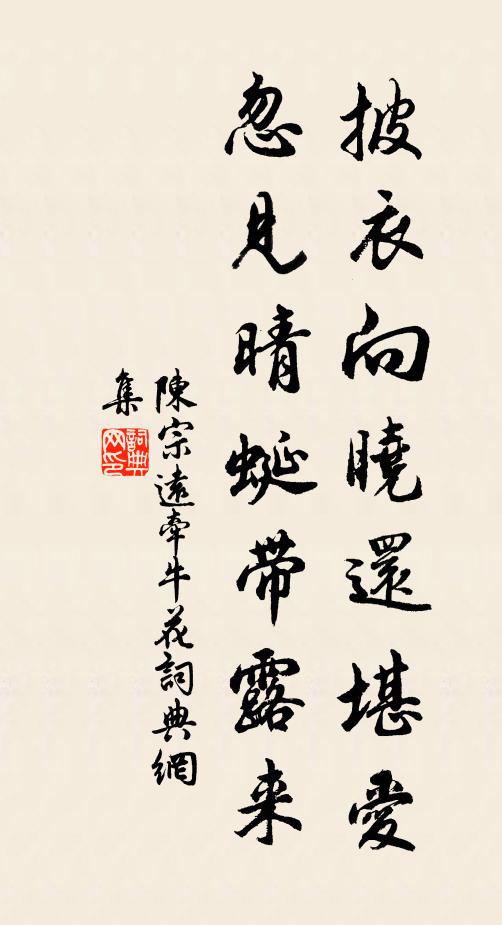 披衣向曉還堪愛
忽見晴蜒帶露来
陳宗遠牽牛花詞典網
集
詞典
网印